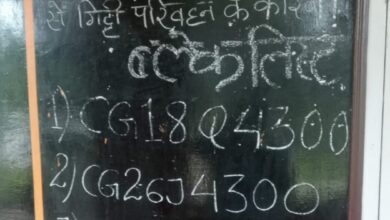 से मिट्टी परिवहन के कारण
ब्लेकलिस्ट
1) CG18Q4300
2) CG26J4300